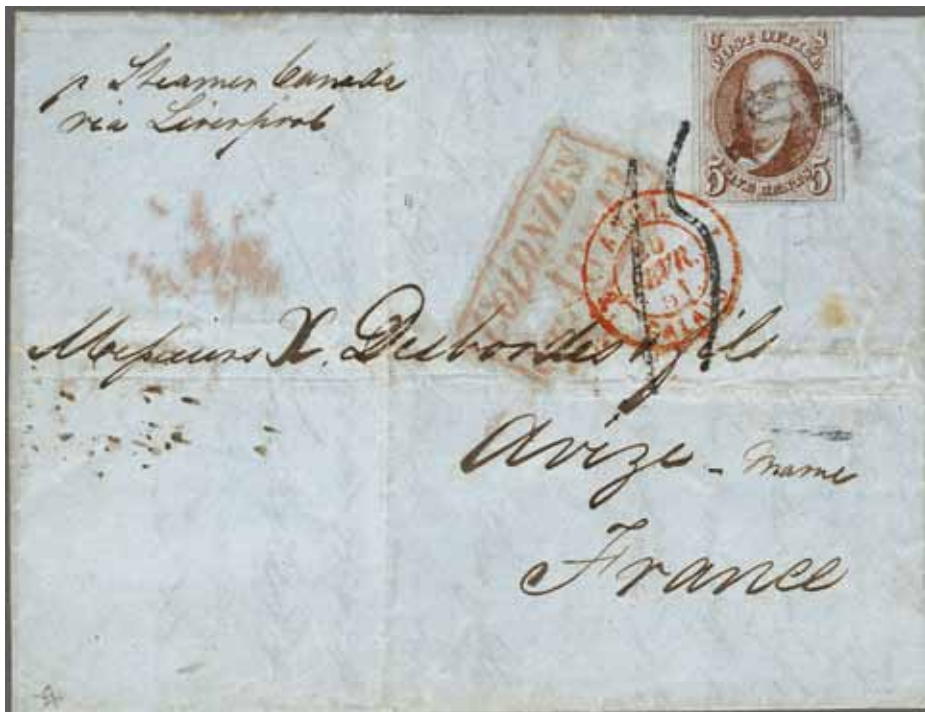 p Steamer Canada
via Liverpool
POST OFFICE
5 FIVE CENTS 5
COLONIES
FEVR.
51
CALAIS
15
Messieurs X. Desbordes & fils
Avize - Marne
France